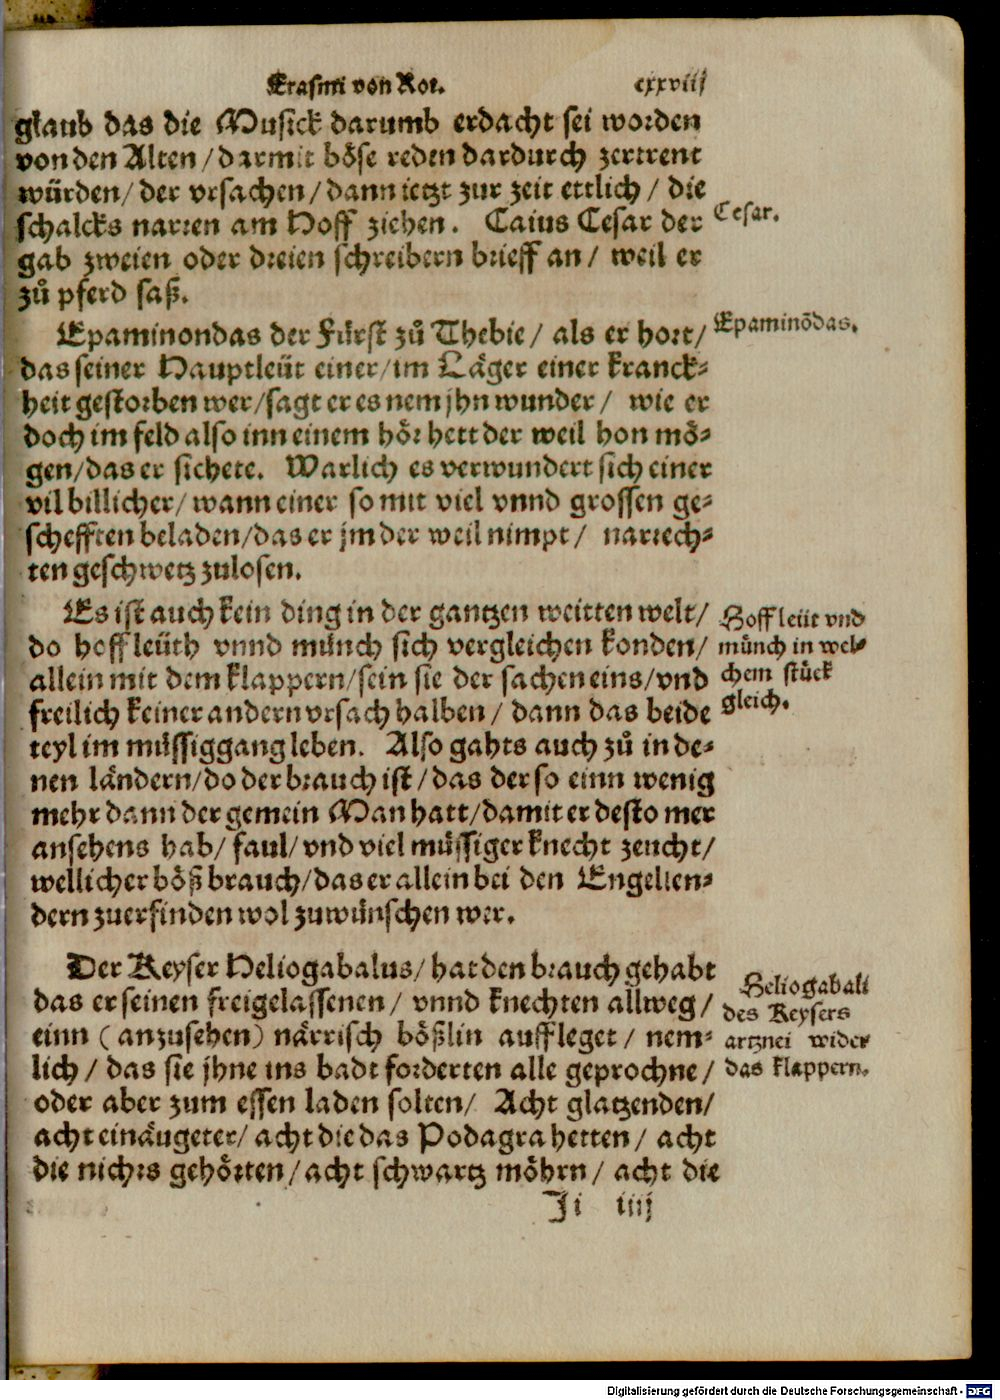 Erasmi von Rot. cxxviij
glaub das die Musick darumb erdacht sei worden
von den Alten / darmit böse reden dardurch zertrent
würden / der vrsachen / dann ietzt zur zeit ettlich / die
schalcks narren am Hoff ziehen. Caius Cesar der
Cesar.
gab zweien oder dreien schreibern brieff an / weil er
zů pferd saß.
Epaminondas der Fürst zů Thebie / als er hort /
Epaminōdas.
das seiner Hauptleüt einer / im Läger einer kranck⸗
heit gestorben wer / sagt er es nem jhn wunder / wie er
doch im feld also inn einem hör hett der weil hon mö⸗
gen / das er sichete. Warlich es verwundert sich einer
vil billicher / wann einer so mit viel vnnd grossen ge⸗
schefften beladen / das er jm der weil nimpt / narrech⸗
ten geschwetz zulosen.
Es ist auch kein ding in der gantzen weitten welt /
do hoffleüth vnnd münch sich vergleichen konden /
allein mit dem klappern / sein sie der sachen eins / vnd
freilich keiner andern vrsach halben / dann das beide
teyl im müssiggang leben. Also gahts auch zů in de⸗
Hoffleüt vnd
münch in wel⸗
chem stück
gleich.
nen ländern / do der brauch ist / das der so einn wenig
mehr dann der gemein Man hatt / damit er desto mer
ansehens hab / faul / vnd viel müssiger knecht zeucht /
wellicher böß brauch / das er allein bei den Engellen⸗
dern zuerfinden wol zuwünschen wer.
Der Keyser Heliogabalus / hat den brauch gehabt
das er seinen freigelassenen / vnnd knechten allweg /
einn ( anzusehen ) närrisch bößlin auffleget / nem⸗
lich / das sie jhne ins badt forderten alle geprochne /
Heliogabali
des Keysers
artznei wider
das klappern.
oder aber zum essen laden solten / Acht glatzenden /
acht einäugeter / acht die das Podagra hetten / acht
die nichts gehörten / acht schwartz möhrn / acht die
Ji iiij
Digitalisierung gefördert durch die Deutsche Forschungsgemeinschaft - DFG